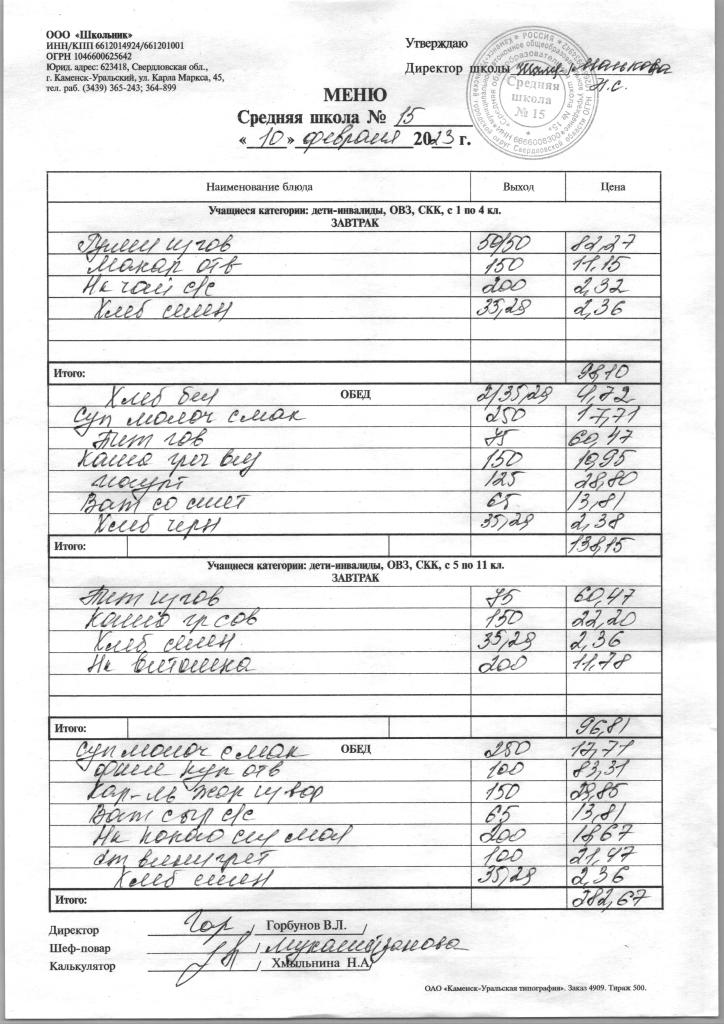 ООО «Школьник»
ИНН/КПП 6612014924/661201001
ОГРН 1046600625642
Юрид. адрес: 623418, Свердловская обл.,
г. Каменск-Уральский, ул. Карла Маркса, 45,
тел. раб. (3439) 365-243; 364-899
Утверждаю
Директор школы
Н.С.
Средняя школа № 15
МЕНЮ
Средняя школа № 15
« 10 » февраля 2023 г.
Наименование блюда Выход Цена
Учащиеся категории: дети-инвалиды, ОВЗ, СКК, с 1 по 4 кл.
ЗАВТРАК
50/50 82,27
Макар отв 150 11,15
Нк чай с/с 200 2,32
Хлеб 35,29 2,36
Итого: 98,10
ОБЕД
Хлеб бел 2/35,29 4,72
Суп молоч с мак 250 17,71
гов 75 60,47
Каша греч 150 10,95
йогурт 125 28,80
Ват со смет 65 13,81
Хлеб черн 35,29 2,38
Итого: 138,15
Учащиеся категории: дети-инвалиды, ОВЗ, СКК, с 5 по 11 кл.
ЗАВТРАК
75 60,47
Каша 150 22,20
Хлеб 35,29 2,36
Нк витошка 200 11,78
Итого: 96,81
ОБЕД
Суп молоч с мак 250 17,71
филе кур отв 100 83,31
150 29,85
Ват сыр с/с 65 13,81
Нк какао 200 18,67
винегрет 100 21,47
Хлеб 35,29 2,36
Итого: 282,67
Директор / Горбунов В.Л. /
Шеф-повар /
Калькулятор / Хмыльнина Н.А/
ОАО «Каменск-Уральская типография». Заказ 4909. Тираж 500.